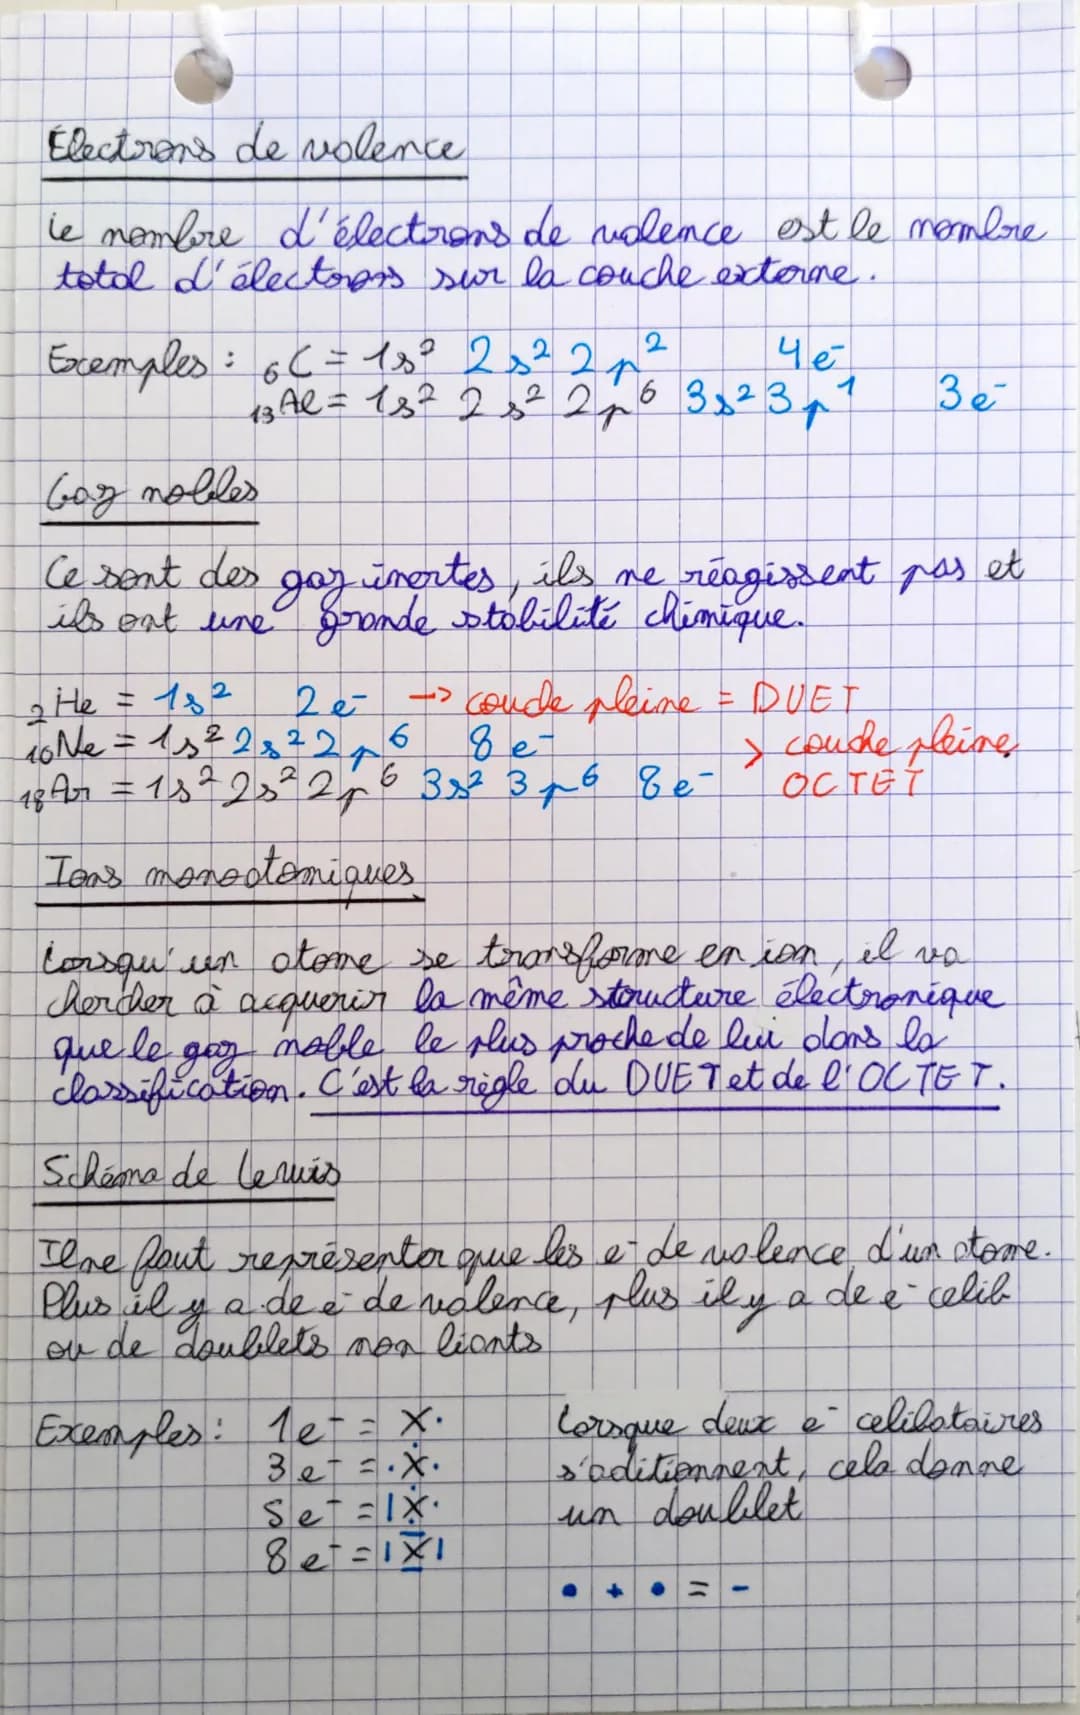 Électrons de valence
Le nombre d'électrons de valence est le nombre
total d'électrons sur la couche externe.
Exemples : ₆C = 1s² 2s² 2p² 4e⁻
₁₃Al = 1s² 2s² 2p⁶ 3s² 3p¹ 3e⁻
Gaz nobles
Ce sont des gaz inertes, ils ne réagissent pas et
ils ont une grande stabilité chimique.
₂He = 1s² 2e⁻ → couche pleine = DUET
₁₀Ne = 1s² 2s² 2p⁶ 8e⁻ > couche pleine
₁₈Ar = 1s² 2s² 2p⁶ 3s² 3p⁶ 8e⁻ OCTET
Ions monoatomiques
Lorsqu'un atome se transforme en ion, il va
chercher à acquérir la même structure électronique
que le gaz noble le plus proche de lui dans la
classification. C'est la règle du DUET et de l'OCTET.
Schéma de Lewis
Il ne faut représenter que les e⁻ de valence d'un atome.
Plus il y a de e⁻ de valence, plus il y a de e⁻ celib
ou de doublets non liants
Exemples : 1e⁻ = X·
3e⁻ = ·Ẋ·
5e⁻ = |Ẋ·
8e⁻ = |X̲̅|
Lorsque deux e⁻ celibataires
s'aditionnent, cela donne
un doublet
• + • = -